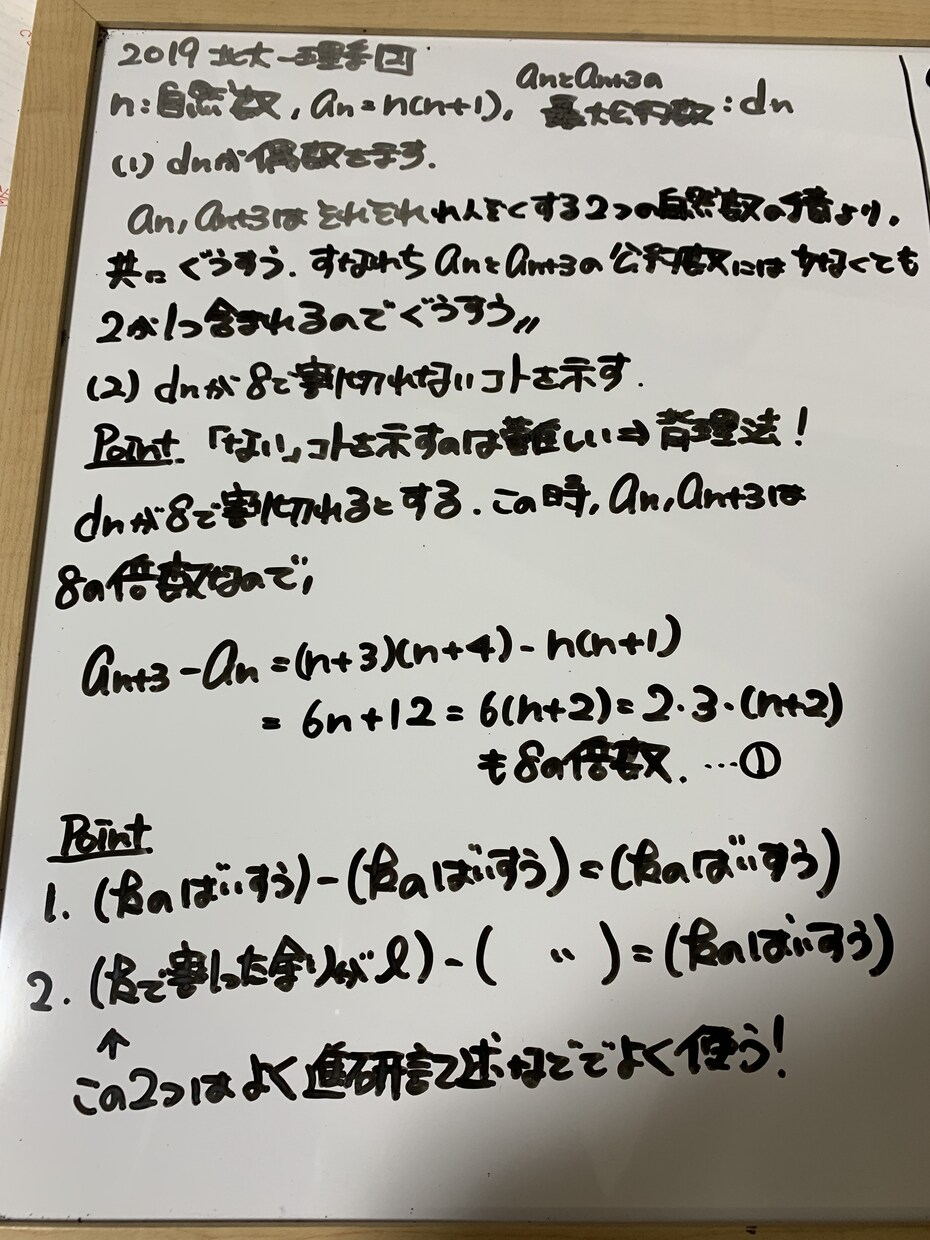 2019 北大 理系[2]
anとan+3の
n:自然数, an=n(n+1), 最大公約数:dn
(1) dnが偶数を示す.
an, an+3はそれぞれれんぞくする2つの自然数の積より,
共に ぐうすう. すなわち anとan+3の公約数には少なくても
2が1つ含まれるのでぐうすう〃
(2) dnが8で割切れないコトを示す.
Point 「ない」コトを示すのは難しい⇒背理法!
dnが8で割り切れるとする. この時, an, an+3は
8の倍数なので,
an+3-an=(n+3)(n+4)-n(n+1)
=6n+12=6(n+2)=2・3・(n+2)
も8の倍数. …①
Point
1. (kのばいすう)-(kのばいすう)=(kのばいすう)
2. (kで割った余りがl)-( 〃 )=(kのばいすう)
↑
この2つはよく進研記述などでよく使う!